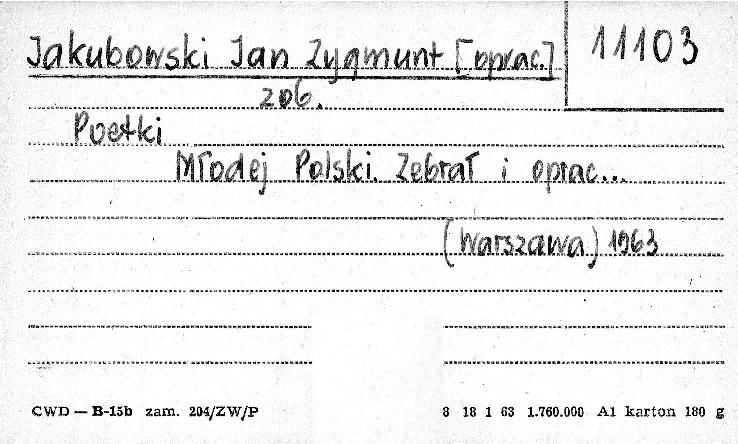 Jakubowski Jan Zygmunt [oprac.] 11103
zob.
Poetki
Młodej Polski. Zebrał i oprac...
(Warszawa) 1963
CWD — B-15b zam. 204/ZW/P 8 18 1 63 1.760.000 A1 karton 180 g